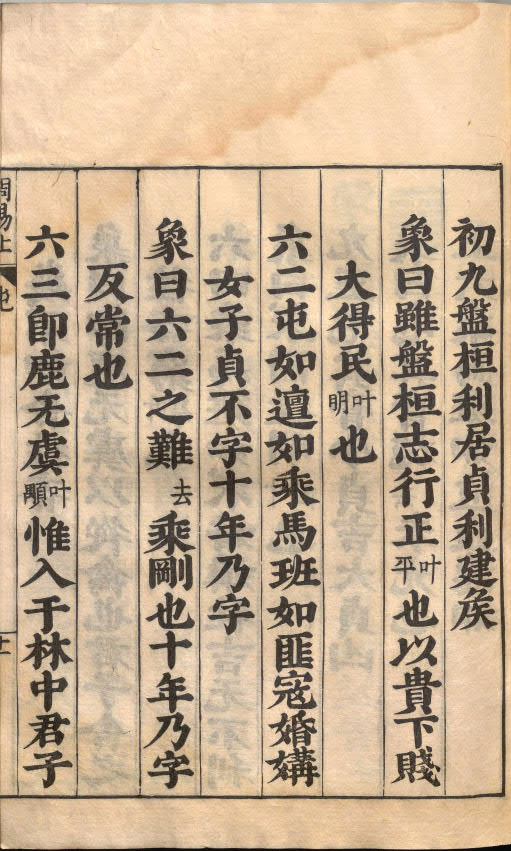 初九盤桓利居貞利建矦
象曰雖盤桓志行正叶平也以貴下賤
大得民叶明也
六二屯如邅如乘馬班如匪寇婚媾
女子貞不字十年乃字
象曰六二之難去乘剛也十年乃字
反常也
六三即鹿无虞叶顒惟入于林中君子
周易上 屯 十一